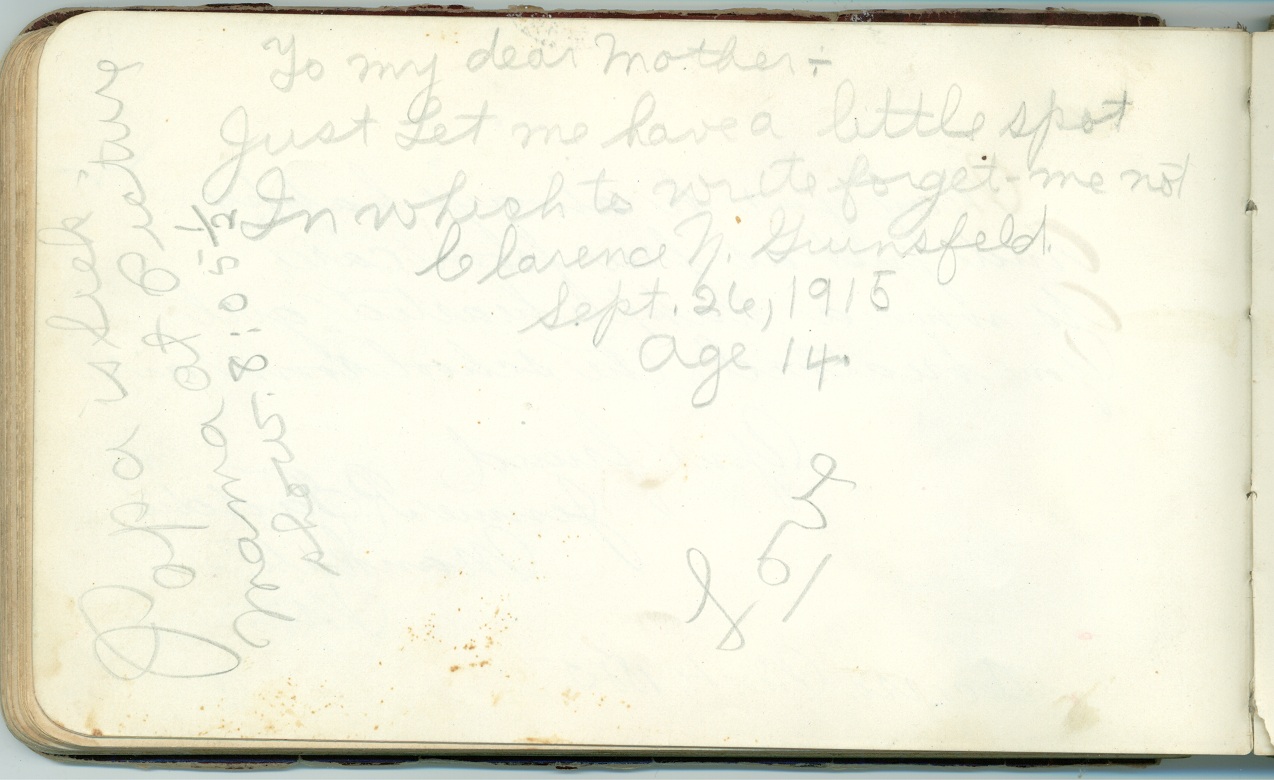 To my dear Mother:-
Just Let me have a little spot
In which to write forget-me not
Clarence N. Gunsfeld.
Sept. 26, 1915
Age 14.
Papa is sick
mama at Picture
show. 8:05 1/2